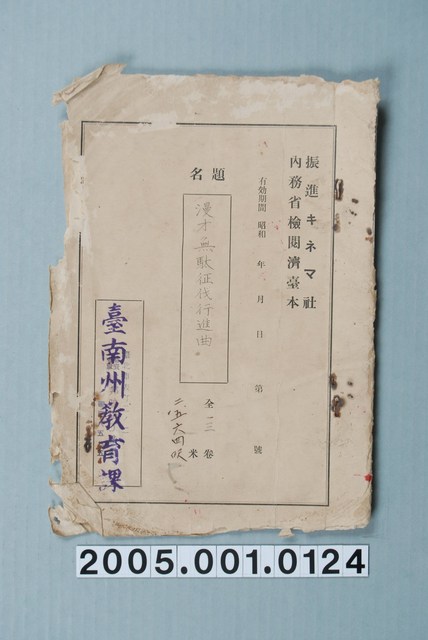 振進キネマ社
內務省檢閱濟臺本
有効期間 昭和 年 月 日 第 號
題名
漫才無駄征伐行進曲
全 三 卷
米
臺南州教育課
2005.001.0124